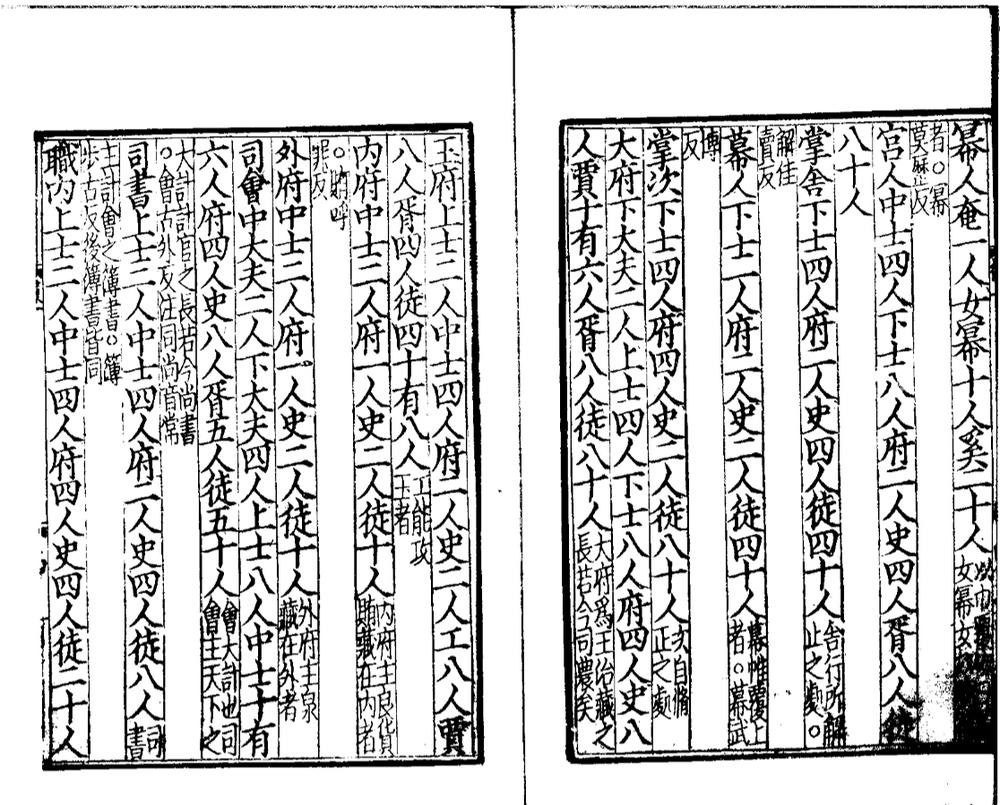 冪人奄一人女冪十人奚二十人以巾覆物曰冪女冪女奴曉冪
者○冪莫歷反
宮人中士四人下士八人府二人史四人胥八人徒
八十人
掌舍下士四人府二人史四人徒四十人舍行所解止之處○
解佳賣反
幕人下士一人府二人史二人徒四十人幕帷覆上者○幕武
博反
掌次下士四人府四人史二人徒八十人次自脩正之處
大府下大夫二人上士四人下士八人府四人史八
人賈十有六人胥八人徒八十人大府爲王治藏之長若今司農矣
玉府上士二人中士四人府二人史二人工八人賈
八人胥四人徒四十有八人工能攻玉者
內府中士二人府一人史二人徒十人內府主良貨賄藏在內者
○賄呼罪反
外府中士二人府一人史二人徒十人外府主泉藏在外者
司會中大夫二人下大夫四人上士八人中士十有
六人府四人史八人胥五人徒五十人會大計也司會主天下之
大計計官之長若今尚書○會古外反注同尚音常
司書上士二人中士四人府二人史四人徒八人司書
主計會之簿書○簿步古反後簿書皆同
職內上士二人中士四人府四人史四人徒二十人